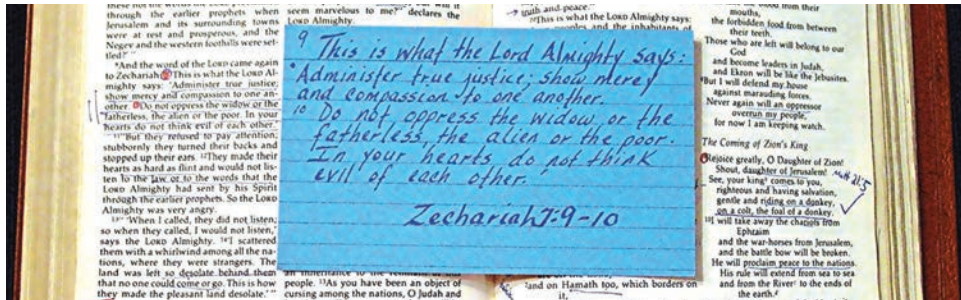 through the earlier prophets when
Jerusalem and its surrounding towns
were at rest and prosperous, and the
Negev and the western foothills were set-
tled?'"
"And the word of the LORD came again
to Zechariah: "This is what the LORD Al-
mighty says: 'Administer true justice;
show mercy and compassion to one an-
other. Do not oppress the widow or the
fatherless, the alien or the poor. In your
hearts do not think evil of each other.'
11"But they refused to pay attention;
stubbornly they turned their backs and
stopped up their ears. 12They made their
hearts as hard as flint and would not lis-
ten to the law or to the words that the
LORD Almighty had sent by his Spirit
through the earlier prophets. So the LORD
Almighty was very angry.
13"'When I called, they did not listen;
so when they called, I would not listen,'
says the LORD Almighty. 14'I scattered
them with a whirlwind among all the na-
tions, where they were strangers. The
land was left so desolate behind them
that no one could come or go. This is how
they made the pleasant land desolate.'"
seem marvelous to me?" declares the
LORD Almighty.
9 This is what the Lord Almighty says:
'Administer true justice; show mercy
and compassion to one another.
10 Do not oppress the widow or the
fatherless, the alien or the poor.
In your hearts do not think
evil of each other.'
Zechariah 7:9-10
people. 13As you have been an object of
cursing among the nations, O Judah and
truth and peace."
"This is what the LORD Almighty says:
peoples and the inhabitants of
and on Hamath too, which borders on
it,
mouths,
the forbidden food from between
their teeth.
Those who are left will belong to our
God
and become leaders in Judah,
and Ekron will be like the Jebusites.
8But I will defend my house
against marauding forces.
Never again will an oppressor
overrun my people,
for now I am keeping watch.
The Coming of Zion's King
9Rejoice greatly, O Daughter of Zion!
Shout, daughter of Jerusalem!
Matt 21:5
See, your king comes to you,
righteous and having salvation,
gentle and riding on a donkey,
on a colt, the foal of a donkey.
10I will take away the chariots from
Ephraim
and the war-horses from Jerusalem,
and the battle bow will be broken.
He will proclaim peace to the nations.
His rule will extend from sea to sea
and from the River to the ends of
the earth.